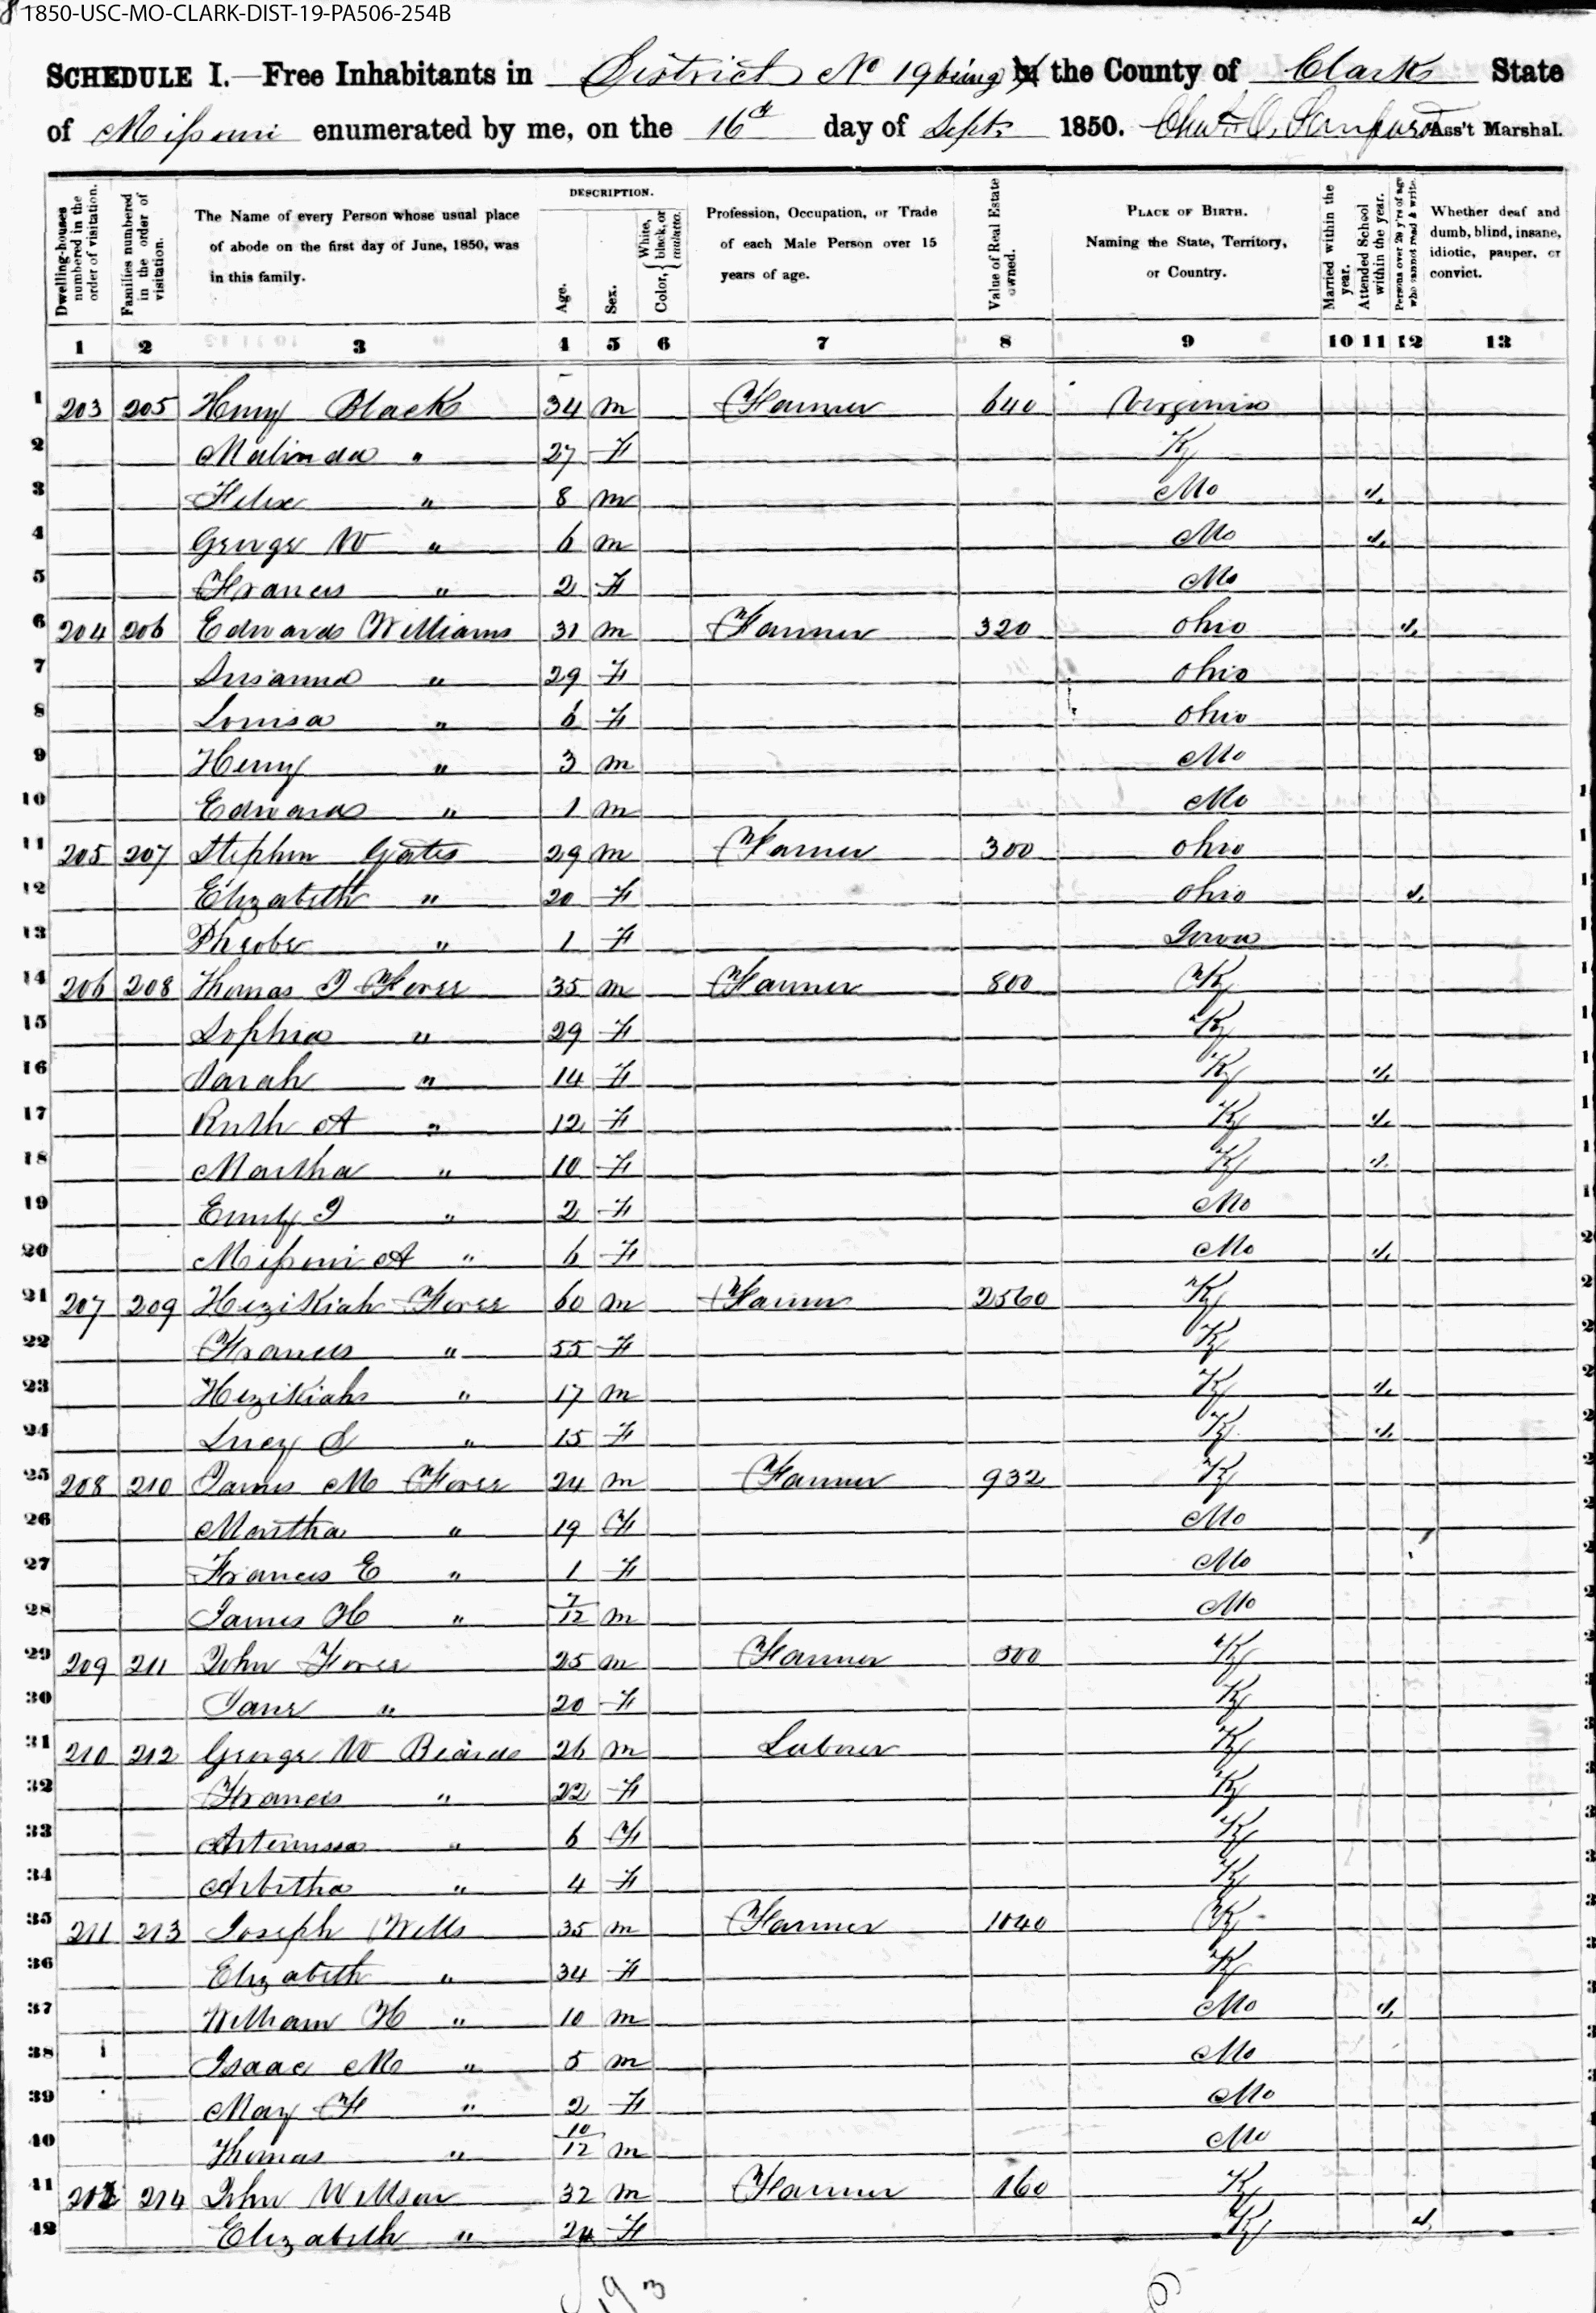 1850-USC-MO-CLARK-DIST-19-PA506-254B
SCHEDULE I.—Free Inhabitants in District No 19 being the County of Clark State
of Missouri enumerated by me, on the 16th day of Sept. 1850. Ass't Marshal.
Dwelling-houses numbered in the order of visitation.
Families numbered in the order of visitation.
The Name of every Person whose usual place of abode on the first day of June, 1850, was in this family.
DESCRIPTION.
Age.
Sex.
Color, { White, black, or mulatto.
Profession, Occupation, or Trade of each Male Person over 15 years of age.
Value of Real Estate owned.
PLACE OF BIRTH. Naming the State, Territory, or Country.
Married within the year.
Attended School within the year.
Persons over 20 y'rs of age who cannot read & write.
Whether deaf and dumb, blind, insane, idiotic, pauper, or convict.
1 2 3 4 5 6 7 8 9 10 11 12 13
1 203 205 Henry Black 34 m Farmer 640 Virginia
2 Malinda " 27 F Ky
3 Felix " 8 m Mo 1,
4 George W " 6 m Mo 1,
5 Francis " 2 F Mo
6 204 206 Edward Williams 31 m Farmer 320 Ohio 1,
7 Susanna " 29 F Ohio
8 Louisa " 6 F Ohio
9 Henry " 3 m Mo
10 Edward " 1 m Mo
11 205 207 Stephen Gates 29 m Farmer 300 Ohio
12 Elizabeth " 20 F Ohio 1,
13 Pheobe " 1 F Iowa
14 206 208 Thomas J Foree 35 m Farmer 800 Ky
15 Sophia " 29 F Ky
16 Sarah " 14 F Ky 1,
17 Ruth A " 12 F Ky 1,
18 Martha " 10 F Ky 1,
19 Emily J " 2 F Mo
20 Missouri A " 6 F Mo 1,
21 207 209 Hezikiah Foree 60 m Farmer 2560 Ky
22 Francis " 55 F Ky
23 Hezikiah " 17 m Ky 1,
24 Lucy S " 15 F Ky 1,
25 208 210 James M Foree 24 m Farmer 932 Ky
26 Martha " 19 F Mo
27 Francis E " 1 F Mo
28 James H " 7/12 m Mo
29 209 211 John Foree 25 m Farmer 500 Ky
30 Jane " 20 F Ky
31 210 212 George W Beards 26 m Laborer Ky
32 Francis " 22 F Ky
33 Artemissa " 6 F Ky
34 Arbitha " 4 F Ky
35 211 213 Joseph Wells 35 m Farmer 1040 Ky
36 Elizabeth " 34 F Ky
37 William H " 10 m Mo 1,
38 Isaac M " 5 m Mo
39 Mary F " 2 F Mo
40 Thomas " 10/12 m Mo
41 214 John Willson 32 m Farmer 160 Ky
42 Elizabeth " 24 F Ky 1,